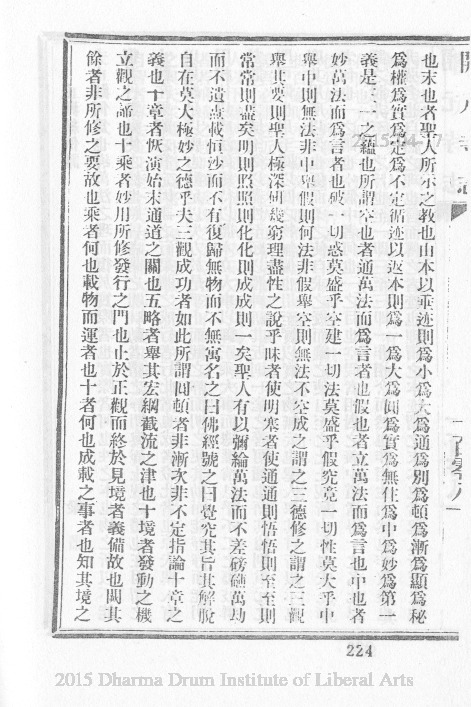 也末也者聖人所示之教也由本以垂迹則爲小爲大爲通爲別爲頓爲漸爲顯爲秘
爲權爲實爲定爲不定循迹以返本則爲一爲大爲圓爲實爲無住爲中爲妙爲第一
義是三一之蘊也所謂空也者通萬法而爲言者也假也者立萬法而爲言也中也者
妙萬法而爲言者也破一切惑莫盛乎空建一切法莫盛乎假究竟一切性莫大乎中
舉中則無法非中舉假則何法非假舉空則無法不空成之謂之三德修之謂之三觀
舉其要則聖人極深研幾窮理盡性之說乎昧者使明塞者使通通則悟悟則至至則
常常則盡矣明則照照則化化則成成則一矣聖人有以彌綸萬法而不差磅礴萬劫
而不遺燾載恒沙而不有復歸無物而不無寓名之曰佛經號之曰覺究其旨其解脫
自在莫大極妙之德乎夫三觀成功者如此所謂圓頓者非漸次非不定指論十章之
義也十章者恢演始末通道之關也五略者舉其宏綱截流之津也十境者發動之機
立觀之諦也十乘者妙用所修發行之門也止於正觀而終於見境者義備故也闕其
餘者非所修之要故也乘者何也載物而運者也十者何也成載之事者也知其境之
224
2015 Dharma Drum Institute of Liberal Arts